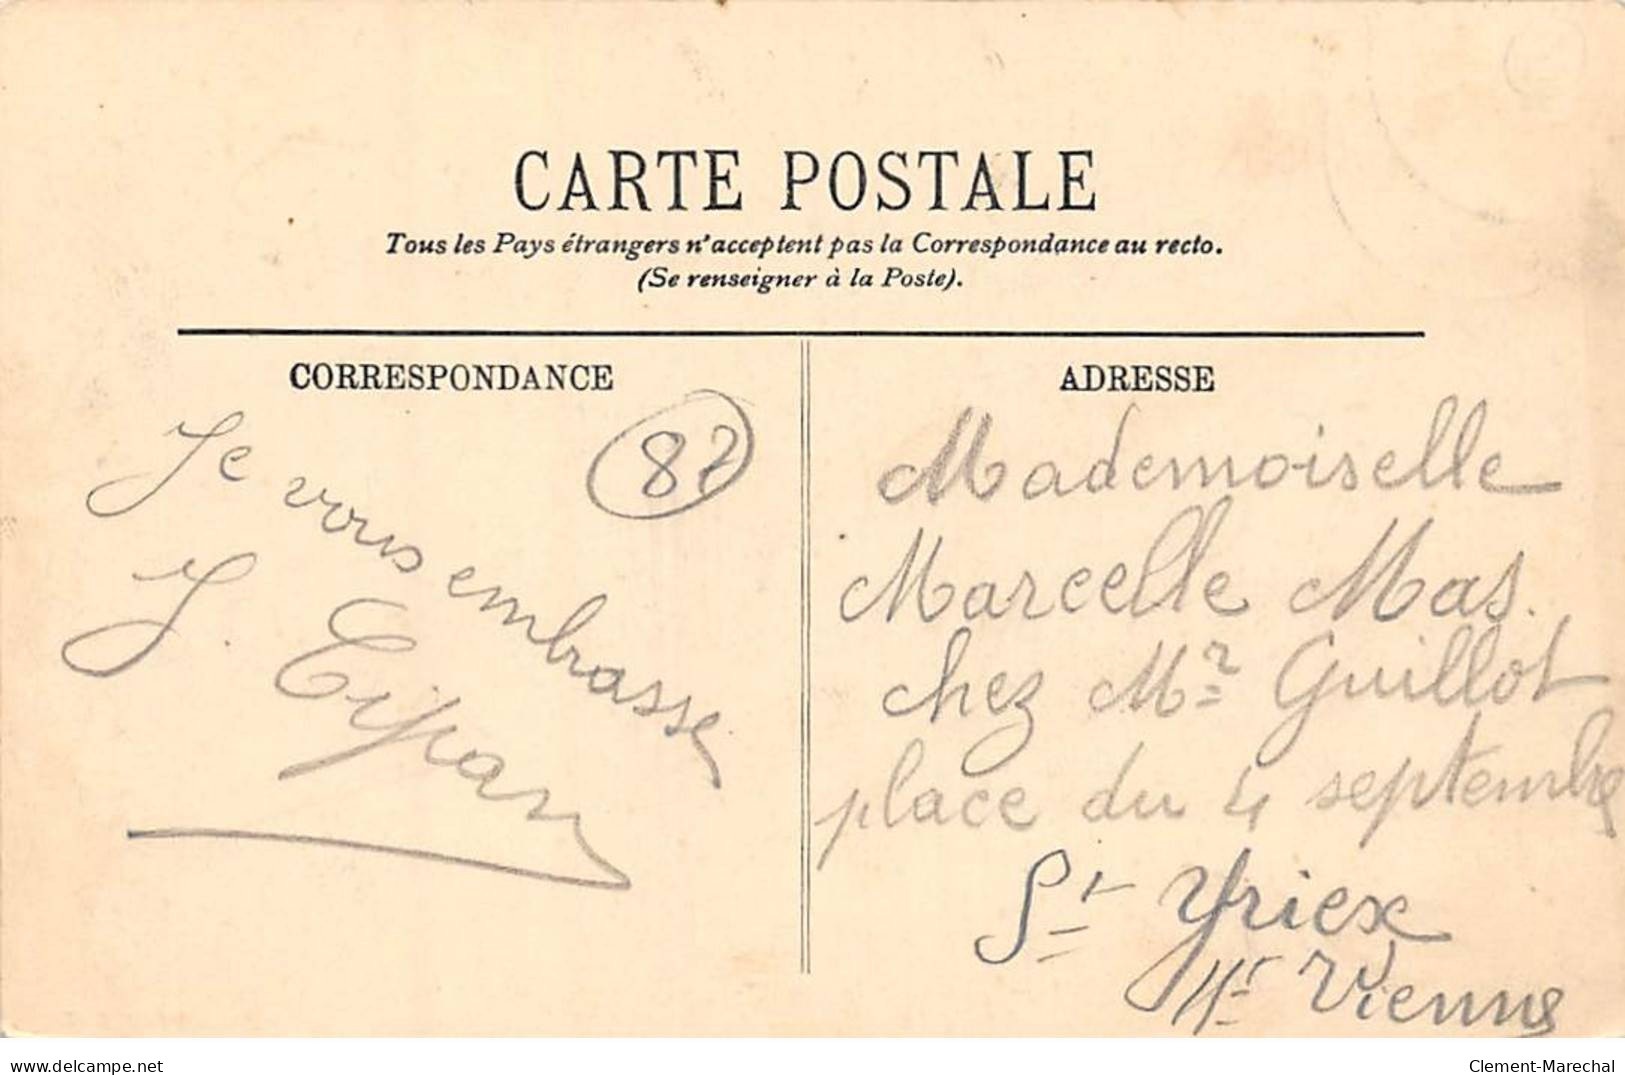 CARTE POSTALE
Tous les Pays étrangers n'acceptent pas la Correspondance au recto.
(Se renseigner à la Poste).
CORRESPONDANCE
87
Je vous embrasse
J.
ADRESSE
Mademoiselle
Marcelle Mas.
chez Mr Guillot
place du 4 septembre
St Yriex
Hte Vienne
delcampe.net
Clement-Marechal